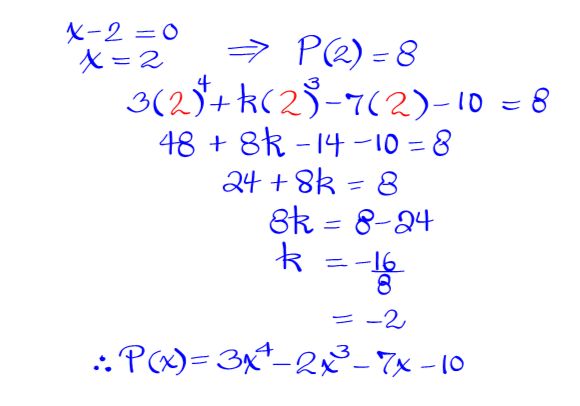 x-2 = 0
x = 2 ⇒ P(2) = 8
3(2)⁴ + k(2)³ - 7(2) - 10 = 8
48 + 8k - 14 - 10 = 8
24 + 8k = 8
8k = 8 - 24
k = -16/8
= -2
∴ P(x) = 3x⁴ - 2x³ - 7x - 10